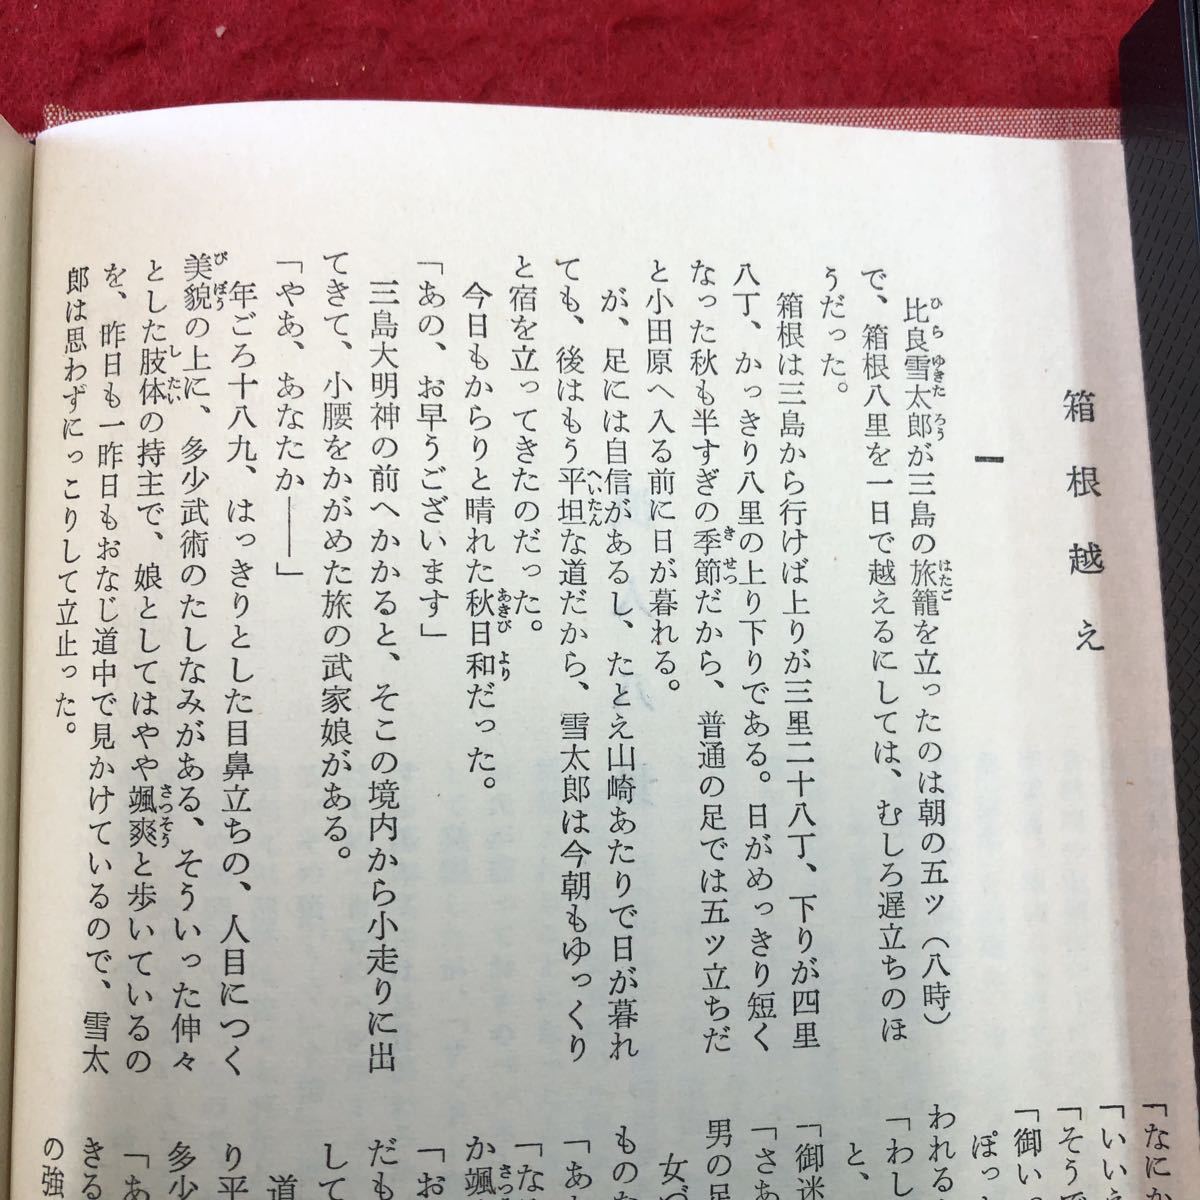 箱根越え
一
比良雪太郎が三島の旅籠を立ったのは朝の五ッ（八時）
で、箱根八里を一日で越えるにしては、むしろ遅立ちのほ
うだった。
箱根は三島から行けば上りが三里二十八丁、下りが四里
八丁、かっきり八里の上り下りである。日がめっきり短く
なった秋も半すぎの季節だから、普通の足では五ッ立ちだ
と小田原へ入る前に日が暮れる。
が、足には自信があるし、たとえ山崎あたりで日が暮れ
ても、後はもう平坦な道だから、雪太郎は今朝もゆっくり
と宿を立ってきたのだった。
今日もからりと晴れた秋日和だった。
「あの、お早うございます」
三島大明神の前へかかると、そこの境内から小走りに出
てきて、小腰をかがめた旅の武家娘がある。
「やあ、あなたか――」
年ごろ十八九、はっきりとした目鼻立ちの、人目につく
美貌の上に、多少武術のたしなみがある、そういった伸々
とした肢体の持主で、娘としてはやや颯爽と歩いているの
を、昨日も一昨日もおなじ道中で見かけているので、雪太
郎は思わずにっこりして立止った。
「なにか
「いいえ
「そうで
「御いっ
ぽっ
われる
「わし
と、
「御迷
「さあ
男の足
女づ
ものな
「あ
「な
か颯
「お
だも
して
道
り平
多少
「あ
きる
の強